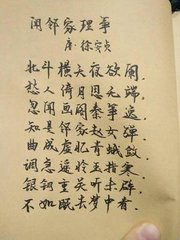 闻邻家理筝
唐·徐安贞
北斗横天夜欲阑
愁人倚月思无端
忽闻画阁秦筝逸
知是邻家赵女弹
曲成虚忆青蛾敛
调急遥怜玉指寒
银锁重关听未辟
不如眠去梦中看